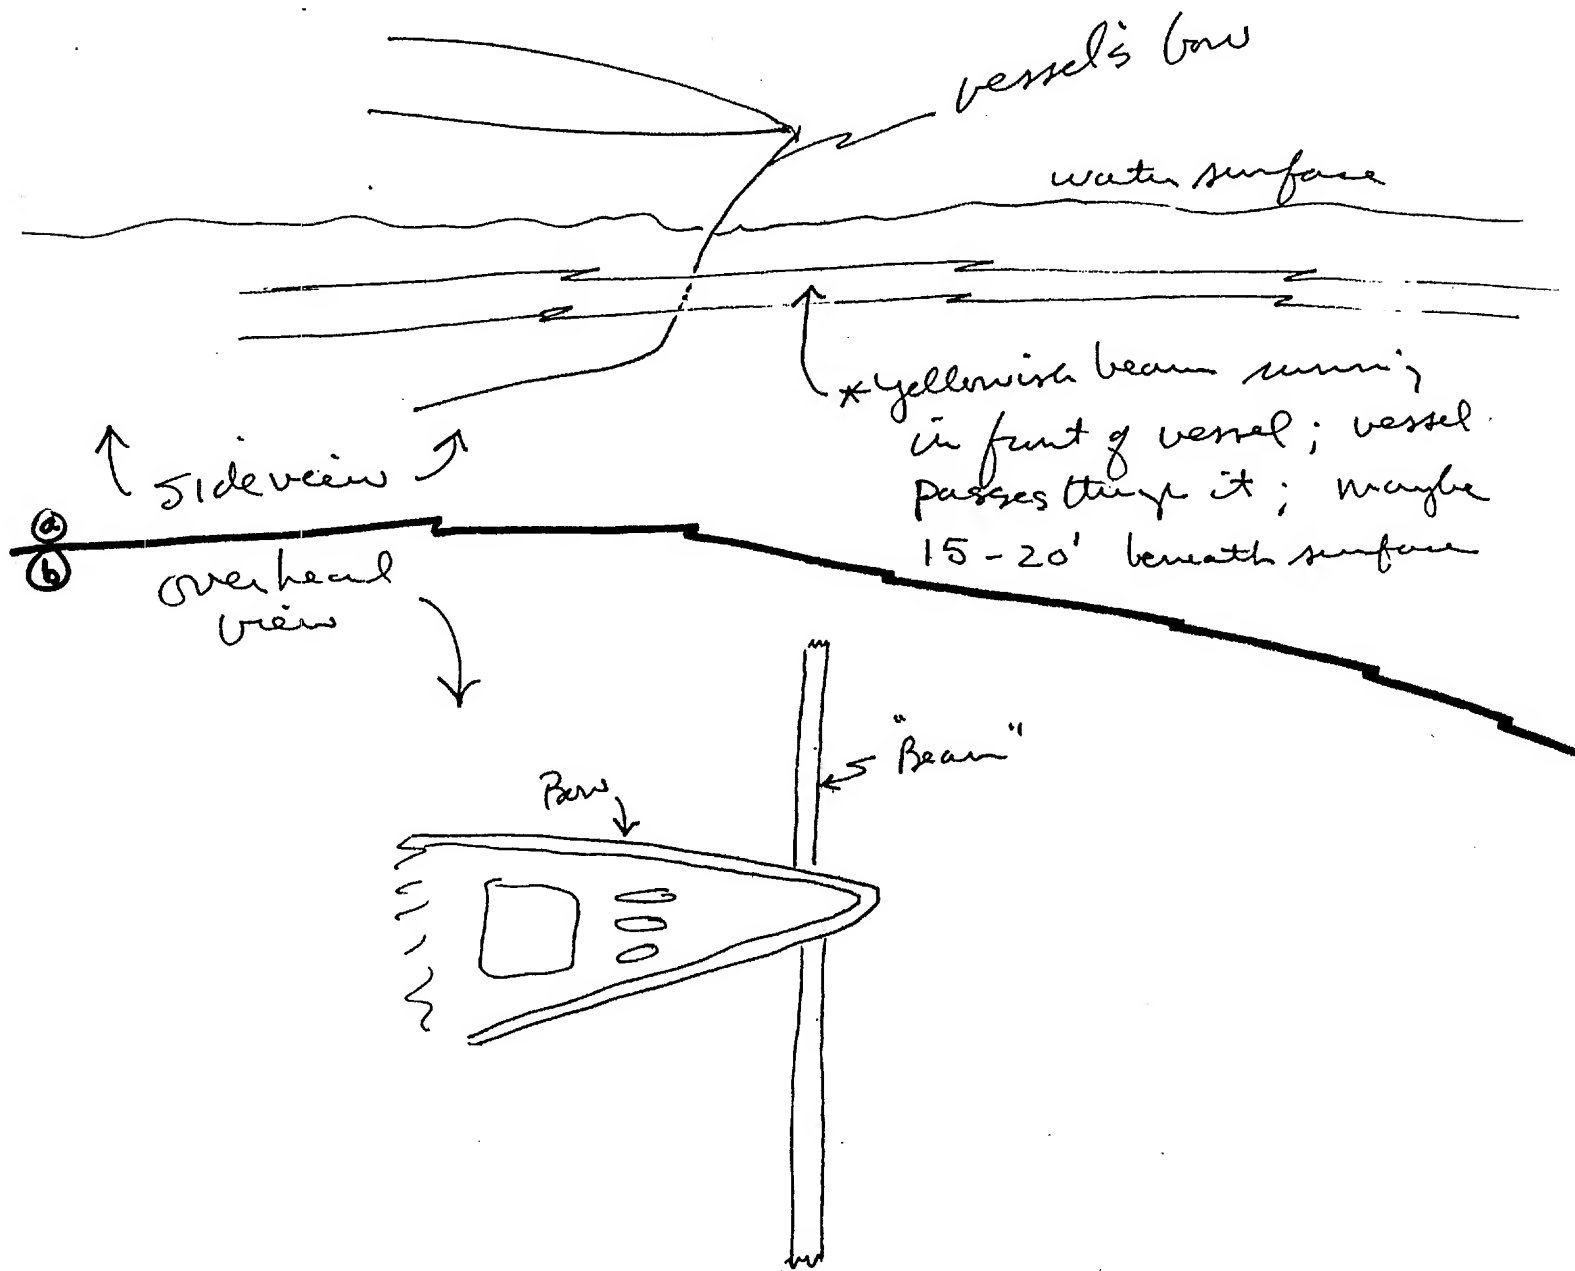 vessel's bow
water surface
*yellowish beam running
in front of vessel; vessel
passes through it; maybe
15-20' beneath surface
sideview
a
b
overhead
view
"Beam"
Bow